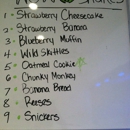 1 - Strawberry Cheesecake
2 - Strawberry Banana
3 - Blueberry Muffin
4 - Wild Skittles
5 - Oatmeal Cookie
6 - Chunky Monkey
7 - Banana Bread
8 - Reeses
9 - Snickers